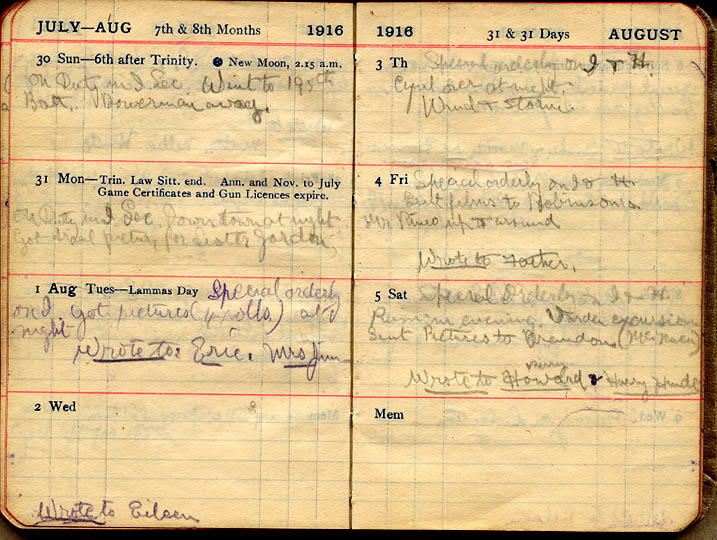 JULY–AUG 7th & 8th Months 1916
30 Sun—6th after Trinity. ● New Moon, 2.15 a.m.
On Duty in I Sec. Went to 195th
Batt. Bowerman away.
31 Mon—Trin. Law Sitt. end. Ann. and Nov. to July
Game Certificates and Gun Licences expire.
On Duty in I Sec. Down town at night
Got picture for Sister Gordon
1 Aug Tues—Lammas Day Special orderly
on I. Got pictures (4 rolls) at
night
Wrote to: Eric. Mrs
2 Wed
Wrote to Eileen
1916 31 & 31 Days AUGUST
3 Th Special orderly on I & H.
at night.
Wind & storm.
4 Fri Special orderly on I & H.
Sent films to Robinsons
up & around
Wrote to Father.
5 Sat Special Orderly on I & H.
evening. excursion
Sent Pictures to Brandon
Wrote to Howard & Harry
Mem